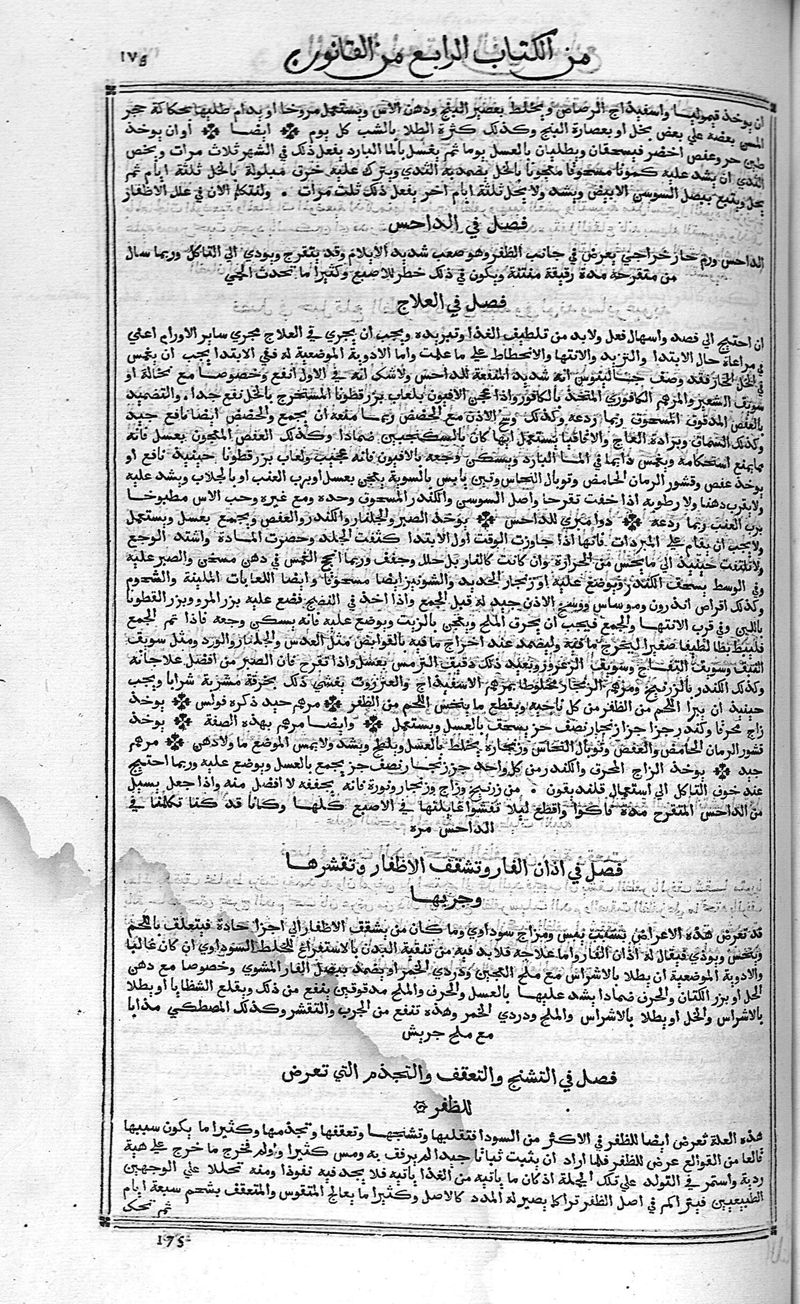 ١٧٥
من الكتاب الرابع من القانون
ان يوخذ قيموليا واسفيذاج الرصاص ويخلط بعصير البنج ودهن الاس ويستعمل مروخا او يدام طليها بحكاكة حجر
المسن بعضه علي بعض بخل او بعصارة البنج وكذلك كثرة الطلا بالشب كل يوم ❊ ايضا ❊ او ان يوخذ
طين حر وعفص اخضر فيسحقان ويطليان بالعسل يوما ثم يغسل بالما البارد يفعل ذلك في الشهر ثلاث مرات ويخص
الثدي ان يشد عليه كمونا مسحوقا معجونا بالخل يضمد به الثدي ويترك عليه خرق مبلولة بالخل ثلثة ايام ثم
يحل ويتبع ببصل السوسن الابيض ويشد ولا يحل ثلثة ايام اخر يفعل ذلك ثلث مرات . ولنتكلم الان في علل الاظفار
فصل في الداحس
الداحس ورم حار خراجي يعرض في جانب الظفر وهو صعب شديد الايلام وقد يتقرح ويودي الي التاكل وربما سال
من متقرحه مدة رقيقة منتنة ويكون في ذلك خطر للاصبع وكثيرا ما تحدث الحمي
فصل في العلاج
ان احتيج الي فصد واسهال فعل ولا بد من تلطيف الغذا وتبريده ويجب ان يجري في العلاج مجري ساير الاورام اعني
في مراعاة حال الابتدا والتزيد والانتها والانحطاط علي ما علمت واما الادوية الموضعية له ففي الابتدا يجب ان يغمس
في الخل الحار فقد وصف جالينوس انه شديد المنفعة للداحس ولا شك انه في الاول انفع وخصوصا مع نخالة او
سويق الشعير والمرهم الكافوري المتخذ بالكافور واذا عجن الافيون بلعاب بزر قطونا المستخرج بالخل نفع جدا والتضميد
بالعفص المدقوق المسحوق ربما ردعه وكذلك وسخ الاذن مع الحضض ربما منعه ان يجمع والحضض ايضا نافع جيد
وكذلك السماق وبرادة العاج والاقاقيا يستعمل ايها كان بالسكنجبين ضمادا وكذلك العفص المعجون بعسل فانه
مما يمنع استحكامه ويغمس دايما في الما البارد ويسكن وجعه بالافيون فانه عجيب ولعاب بزر قطونا حينيذ نافع او
يوخذ عفص وقشور الرمان الحامض وتوبال النحاس وتين يابس بالسوية يعجن بعسل او برب العنب او بالجلاب ويشد عليه
ولا يقرب دهنا ولا رطوبة اذا خفت تقرحا واصل السوسن والكندر المسحوق وحده ومع غيره وحب الاس مطبوخا
برب العنب ربما ردعه ❊ دوا مبري للداحس ❊ يوخذ الصبر والجلنار والكندر والعفص ويجمع بعسل ويستعمل
ولا يجب ان يقام علي المبردات فانها اذا جاوزت الوقت اول الابتدا كثفت الجلد وحصرت المادة واشتد الوجع
ولا تلتفت حينيذ الي ما يحس من الحرارة وان كانت كالنار بل حلل وجفف وربما انجح الغمس في دهن مسخن والصبر عليه
وفي الوسط يسحق الكندر ويوضع عليه او زنجار الحديد والشونيز ايضا مسحوقا وايضا اللعابات الملينة والشحوم
وكذلك اقراص اندرون وموساس ووسخ الاذن جيد له قبل الجمع واذا اخذ في النضج فضع عليه بزر المرو وبزر القطونا
باللبن وفي قرب الانتها والجمع فيجب ان يحرق الملح ويعجن بالزيت ويوضع عليه فانه يسكن وجعه فاذا تم الجمع
فليبط بطا لطيفا صغيرا ليخرج ما فيه وليضمد عند اخراج ما فيه بالقوابض مثل العدس والجلنار والورد ومثل سويق
النبق وسويق التفاح وسويق الزعرور وبعد ذلك دقيق الترمس بعسل واذا تقرح كان الصبر من افضل علاجاته
وكذلك الكندر بالزرنيخ ومرهم الزنجار مخلوطا بمرهم الاسفيذاج والعنزروت يغشي ذلك بخرقة مشربة شرابا ويجب
حينيذ ان يبرا اللحم من الظفر من كل ناحية ويقطع ما ينخس اللحم من الظفر ❊ مرهم جيد ذكره فولس ❊ يوخذ
زاج محرقا وكندر جزا جزا زنجار نصف جز يسحق بالعسل ويستعمل ❊ وايضا مرهم بهذه الصفة ❊ يوخذ
قشور الرمان الحامض والعفص وتوبال النحاس وزنجاره يخلط بالعسل ويلطخ ويشد ولا يمس الموضع ما ولا دهن ❊ مرهم
جيد ❊ يوخذ الزاج المحرق والكندر من كل واحد جز زنجار نصف جز يجمع بالعسل ويوضع عليه وربما احتيج
عند خوف التاكل الي استعمال قلنديقون . من زرنيخ وزاج وزنجار ونورة فانه يجففه لا افضل منه واذا جعل يسيل
من الداحس المتقرح مدة فاكوا واقطع ليلا تفشوا غايلتها في الاصبع كلها وكانا قد كنا تكلمنا في
الداحس مرة
فصل في اذان الفار وتشقق الاظفار وتقشرها
وجربها
قد تعرض هذه الاعراض بسبب يبس ومزاج سوداوي وما كان من يشقق الاظفار الي اجزا حادة فيتعلق باللحم
وينخس ويوذي فيقال له اذان الفار واما علاجه فلا بد فيه من تنقية البدن بالاستفراغ للخلط السوداوي ان كان غالبا
والادوية الموضعية ان يطلا بالاشراس مع ملح العجين ودردي الخمر او يضمد ببصل الفار المشوي وخصوصا مع دهن
الخل او بزر الكتان والحرف ضمادا يشد عليهما بالعسل والحرف والملح مدقوقين ينفع من ذلك ويقلع الشظايا او يطلا
بالاشراس والخل او يطلا بالاشراس والملح ودردي الخمر وهذه تنفع من الجرب والتقشر وكذلك المصطكي مذابا
مع ملح جريش
فصل في التشنج والتعقف والتجذم التي تعرض
للظفر
هذه العلة تعرض ايضا للظفر في الاكثر من السودا فتقلبها وتشنجها وتعقفها وتجذمها وكثيرا ما يكون سببها
قالعا من القوالع عرض للظفر فلما اراد ان ينبت نباتا جيدا لم يرفق به ومس كثيرا واولم فخرج ما خرج علي هية
ردية واستمر في التولد علي تلك الجملة اذ كان ما ياتيه من الغذا ياتيه فلا يجد فيه نفوذا ومنه تحللا علي الوجهين
الطبيعيين فيتراكم في اصل الظفر تراكما يصير له المدد كالاصل وكثيرا ما يعالج المتقوس والمتعقف بشحم سبعة ايام
ثم تحك
175